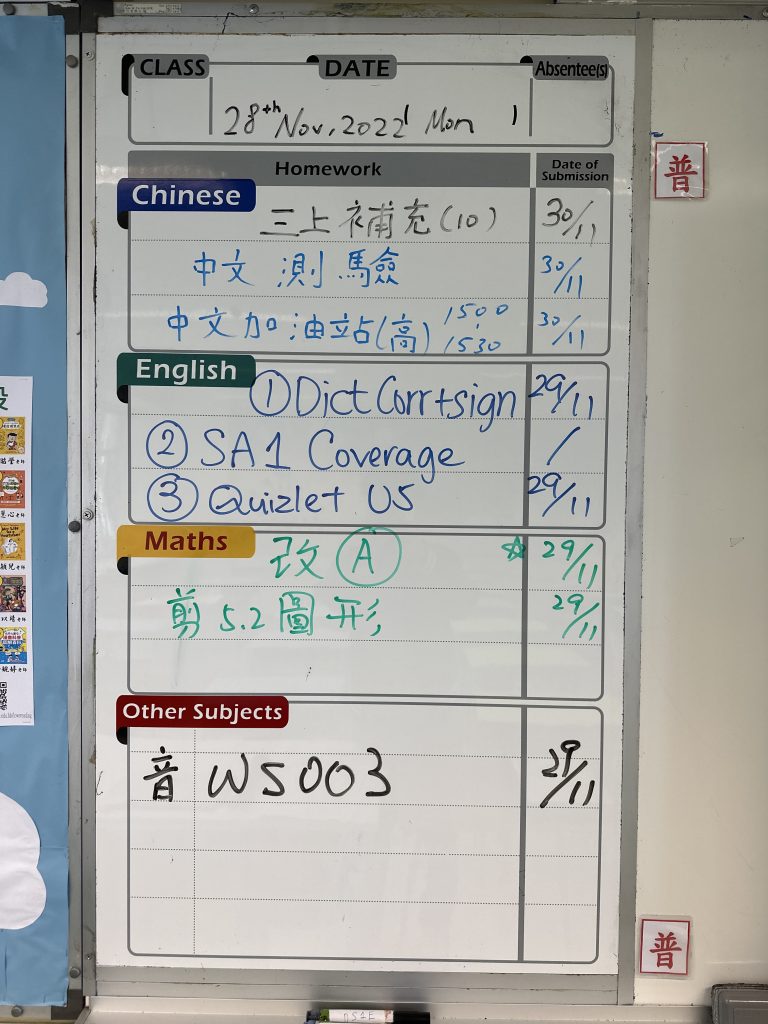 CLASS DATE Absentee(s)
28th Nov, 2022 Mon
Homework Date of Submission
Chinese
三上補充(10) 30/11
中文 測驗 30/11
中文加油站(高) 1500 1530 30/11
English
① Dict Corr+sign 29/11
② SA1 Coverage /
③ Quizlet U5 29/11
Maths
改 Ⓐ ☆ 29/11
剪 5.2 圖形 29/11
Other Subjects
音 WS003 29/11
普
普